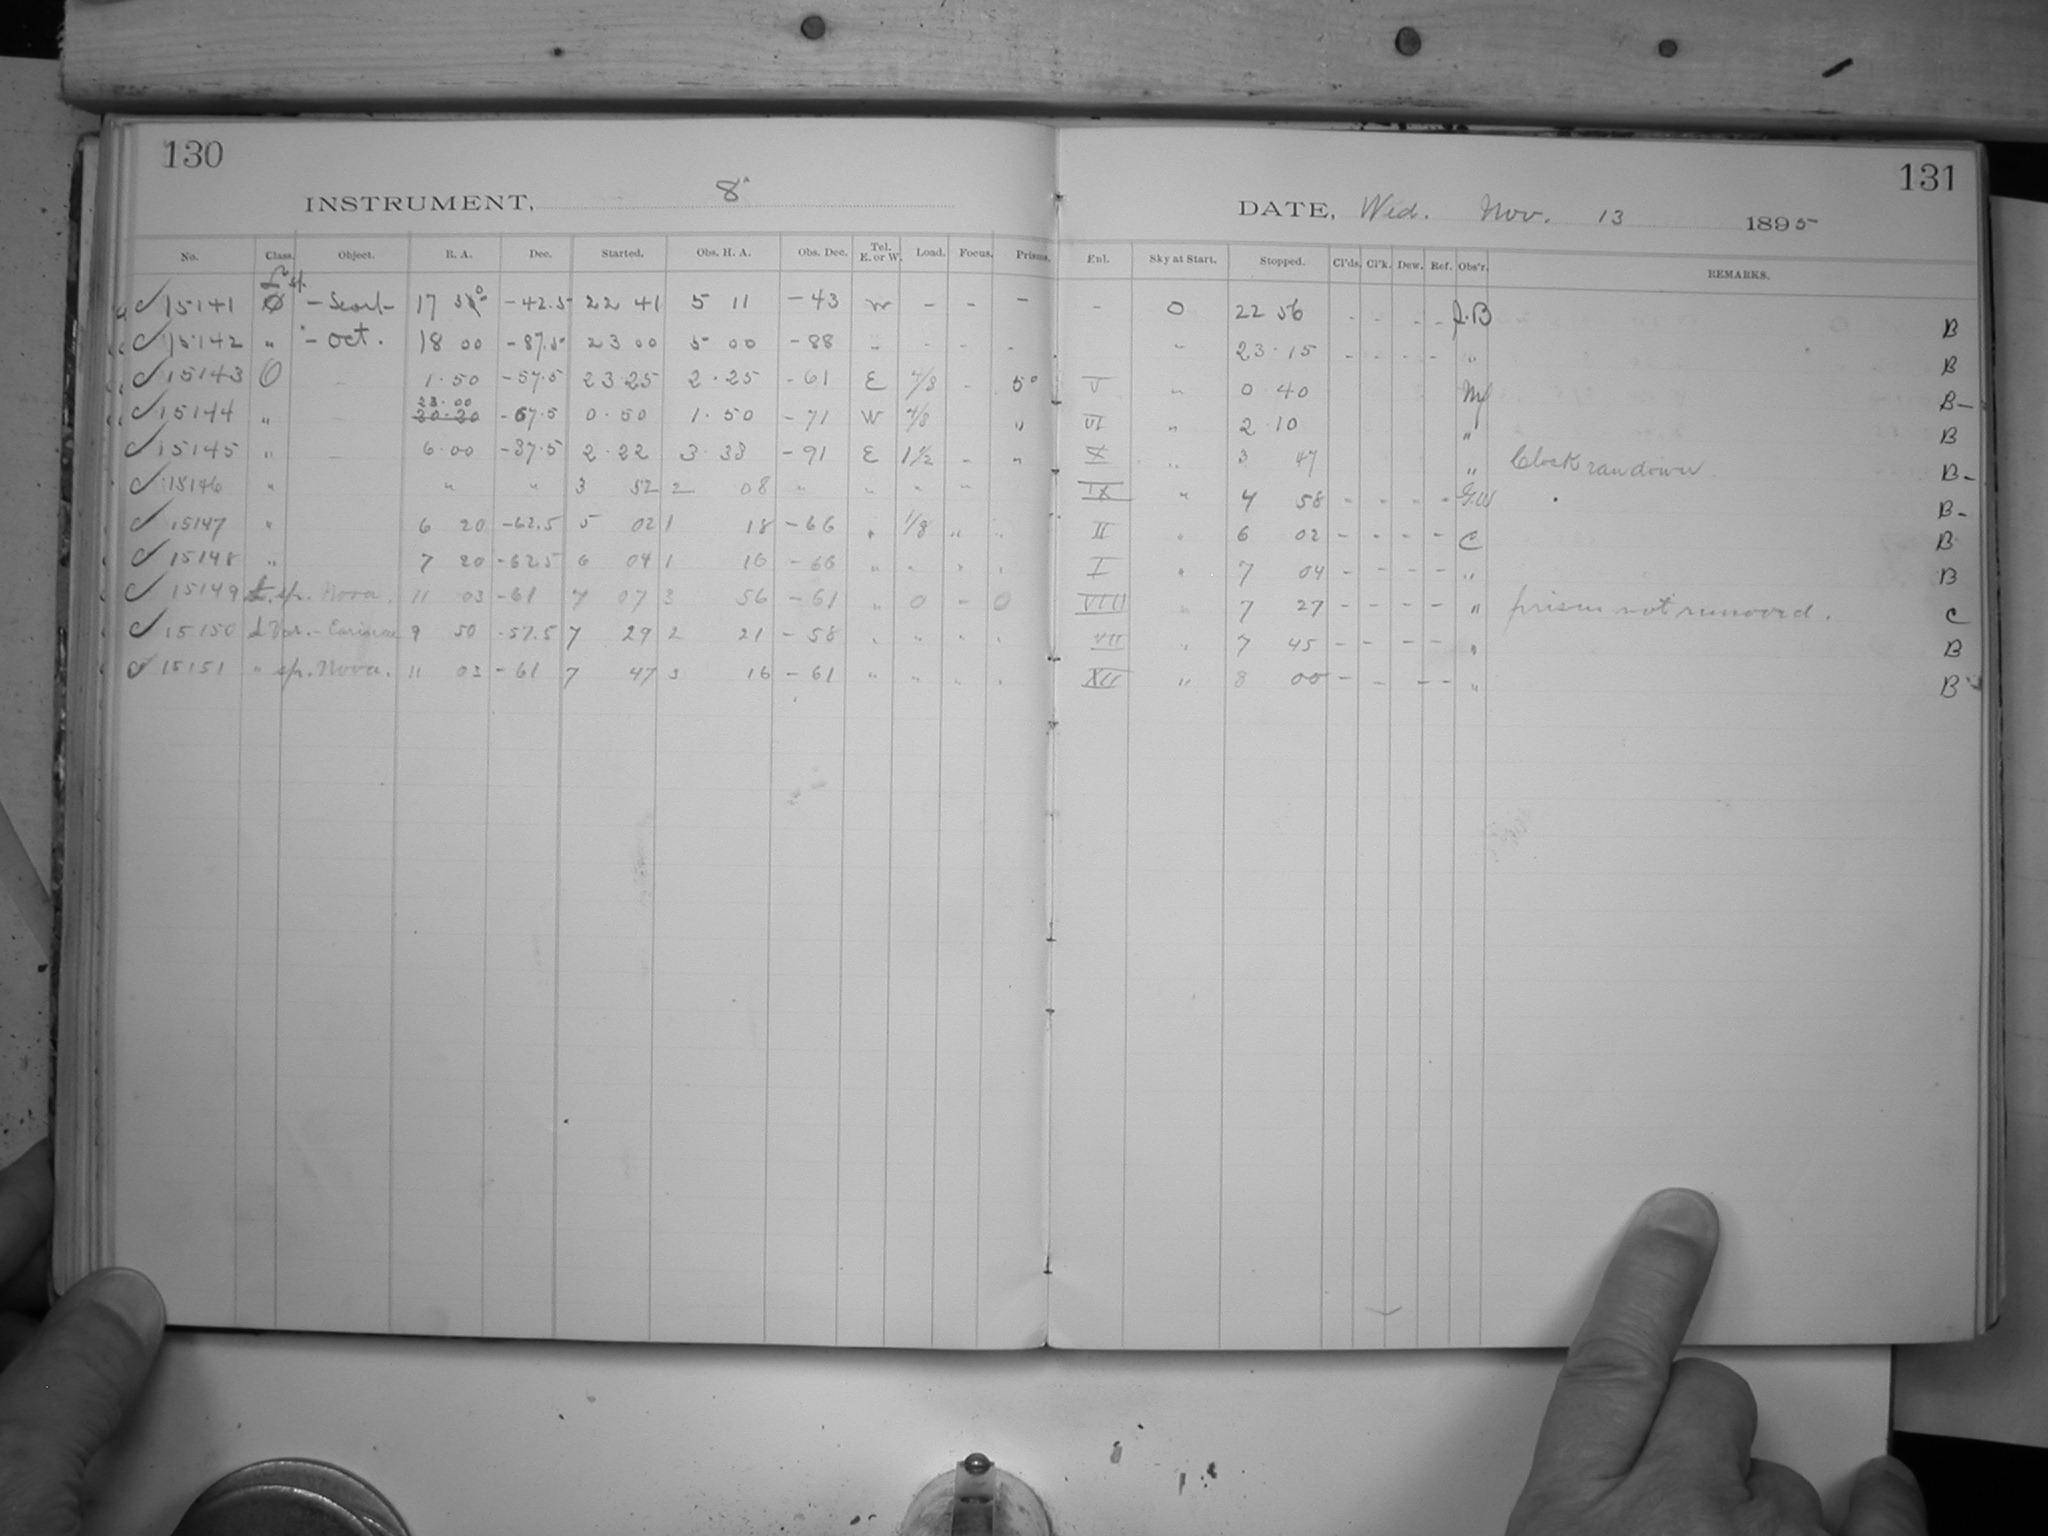 130
INSTRUMENT, 8"
No. Class. Object. R. A. Dec. Started. Obs. H. A. Obs. Dec. Tel. E. or W. Load. Focus. Prisms.
15141 - Scorp 17 -42.5 22 41 5 11 -43 W - - -
15142 " - Oct. 18 00 -87.5 23 00 5 00 -88 " - - -
15143 O - 1.50 -57.5 23.25 2.25 -61 E 4/8 - 5°
23.00
15144 " 20.20 -67.5 0.50 1.50 -71 W 4/8 "
15145 " - 6.00 -87.5 2.22 3.38 -91 E 1 1/2 - "
15146 " " " 3 52 2 08 " " " "
15147 " 6 20 -62.5 5 02 1 18 -66 " 1/8 " "
15148 " 7 20 -62.5 6 04 1 16 -66 " " " "
15149 L. sp. Nova. 11 03 -61 7 07 3 56 -61 " 0 - 0
15150 L Var. - Carinae 9 50 -57.5 7 29 2 21 -58 " " " "
15151 " sp. Nova. 11 03 -61 7 47 3 16 -61 " " " "
131
DATE, Wed. Nov. 13 1895
Enl. Sky at Start. Stopped. Cl'ds. Cl'k. Dew. Ref. Obs'r. REMARKS.
- 0 22 56 - - - - J.B B
" 23.15 - - - - " B
V " 0 40 B-
VI " 2 10 " B
X " 3 47 " Clock ran down B-
IX " 4 58 - - - - G.W B-
II " 6 02 - - - - C B
I " 7 04 - - - - " B
VIII " 7 27 - - - - " prism not removed. C
VII " 7 45 - - - - " B
XII " 8 00 - - - - " B